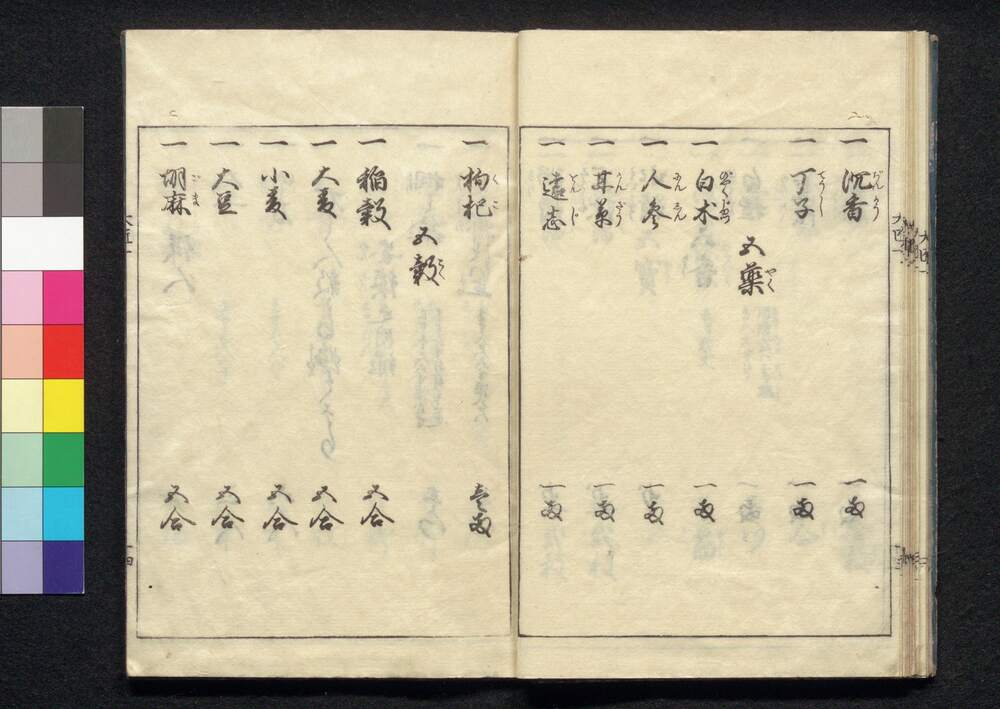 一 沉香 一両
一 丁子 一両
五薬
一 白朮 一両
一 人参 一両
一 甘草 一両
一 遠志 一両
一 枸杞 壱両
五穀
一 稲穀 五合
一 大麦 五合
一 小麦 五合
一 大豆 五合
一 胡麻 五合